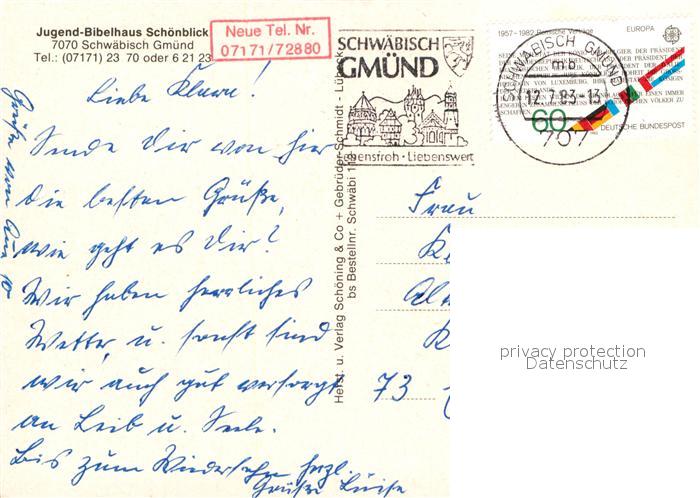 Jugend-Bibelhaus Schönblick
7070 Schwäbisch Gmünd
Tel.: (07171) 23 70 oder 6 21 23
Neue Tel. Nr.
07171/72880
SCHWÄBISCH
GMÜND
Lebensfroh · Liebenswert
SCHWÄBISCH GMÜND
mb
12.7.83-13
707
1957-1982 Römische Verträge
EUROPA
60
DEUTSCHE BUNDESPOST
Liebe
Sende Dir von hier
die besten Grüße,
wie geht es Dir?
Wir haben herrliches
Wetter, u. sonst sind
wir auch gut versorgt
an Leib u. Seele.
Bis zum Wiedersehn herzl.
Grüße Luise
Grüße von
Herst. u. Verlag Schöning & Co + Gebrüder Schmidt - Lübeck
bs Bestellnr. Schwäbi
Frau
73
privacy protection
Datenschutz